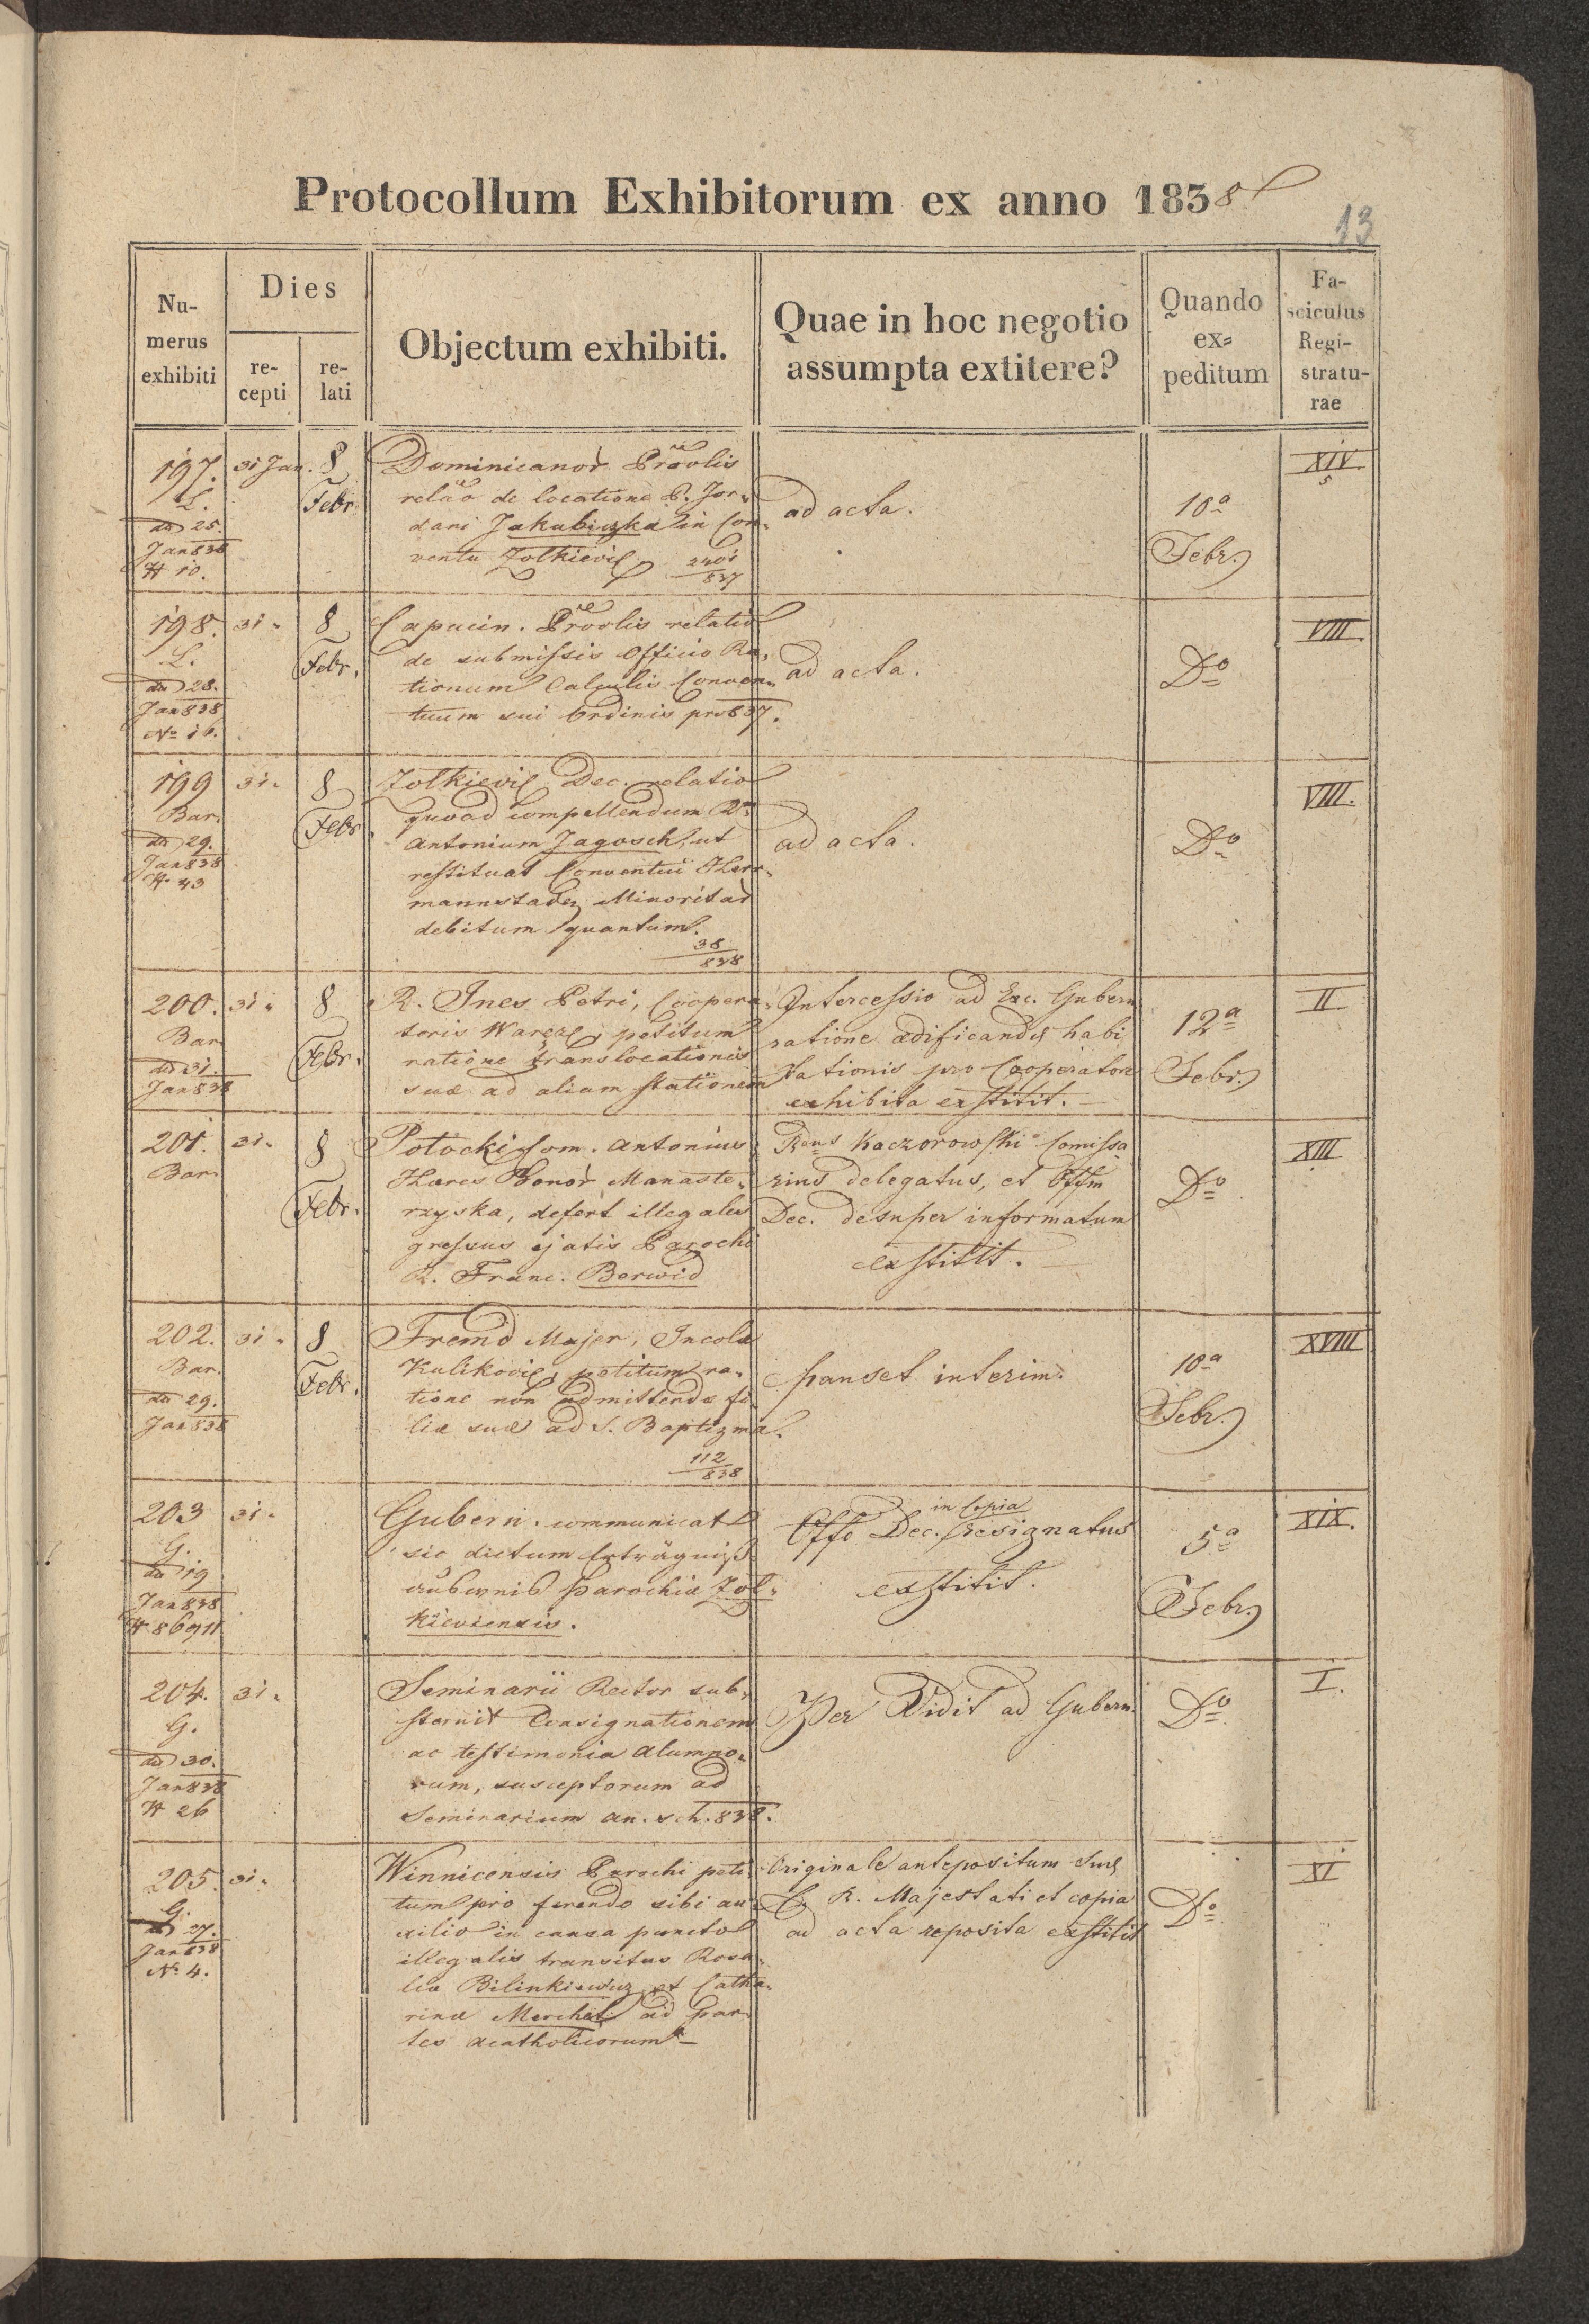 Protocollum Exhibitorum ex anno 1838
13
Nu-
merus
exhibiti
Dies
re-
cepti
re-
lati
Objectum exhibiti.
Quae in hoc negotio
assumpta extitere?
Quando
ex=
peditum
Fa-
sciculus
Regi-
stratu-
rae
197.
L.
dto 25.
Jan 838
№ 10.
31 Jan.
8
Febr.
Dominicanor. Provlis
relão de locatione P. Jor-
dani Jakubiczka in Con-
ventu Zolkievi
2401
837
ad acta.
10a
Febr.
XIV.
198.
L.
dto 28.
Jan 838
No 16.
31.
8
Febr.
Capucin. Provlis relatio
de submissis Officio Ra-
tionum Calculis Conven-
tuum sui Ordinis pro 837.
ad acta.
Do
VIII.
199
Bar.
dto 29.
Jan 838
№ 43
31.
8
Febr.
Zolkievi. Dec. relatio
quoad compellendum Rm
Antonium Jagosch, ut
restituat Conventui Her-
mannstad. Minoritar
debitum quantum.
38
838
ad acta.
Do
VIII.
200.
Bar.
dto 31.
Jan 838
31.
8
Febr.
R. Ines Petri, Coopera-
toris Warez, petitum
ratione translocationis
suae ad aliam stationem
Intercessio ad Exc. Gubern
ratione aedificandae habi
tationis pro Cooperatore
exhibita exstitit.
12a
Febr.
II
201.
Bar.
31.
8
Febr.
Potocki Com. Antonius
Haeres Bonor Manaste-
rzyska, defert illegales
gressus ejatis Parochi
R. Franc. Berwid
Rdus Kaczorowski Comissa
rius delegatus, et Offm
Dec. desuper informatum
exstitit.
Do
XIII
202.
Bar.
dto 29.
Jan 838
31.
8
Febr.
Fremd Majer, Incolae
Kulikovi, petitum ra-
tione non admittendae fi
liae suae ad S. Baptizma.
112
838
panset interim.
10a
Febr.
XVIII
203
G.
dto 19
Jan 838
№ 86911
31.
Gubern. communicat
sic dictum Erträgniß
ausweis Parochiae Zol-
kieviensis.
in Copia
Offo Dec. resignatus
exstitit.
5a
Febr.
XIX.
204.
G.
dto 30.
Jan 838
№ 26
31.
Seminarii Rector sub-
sternit Consignationem
ac testimonia alumno-
rum, susceptorum ad
Seminarium an. sch. 838.
Per Vidit ad Gubern.
Do
I.
205.
G.
27.
Jan 838
No 4.
31.
Winnicensis Parochi peti-
tum pro ferendo sibi au-
xilio in causa puncto
illegalis transitus Rosa-
lia Bilinkiewicz et Catha-
rinae Merchel ad par-
tes acatholicorum
Originale antepositum Suae
C. R. Majestati et copia
ad acta reposita exstitit
Do
XI